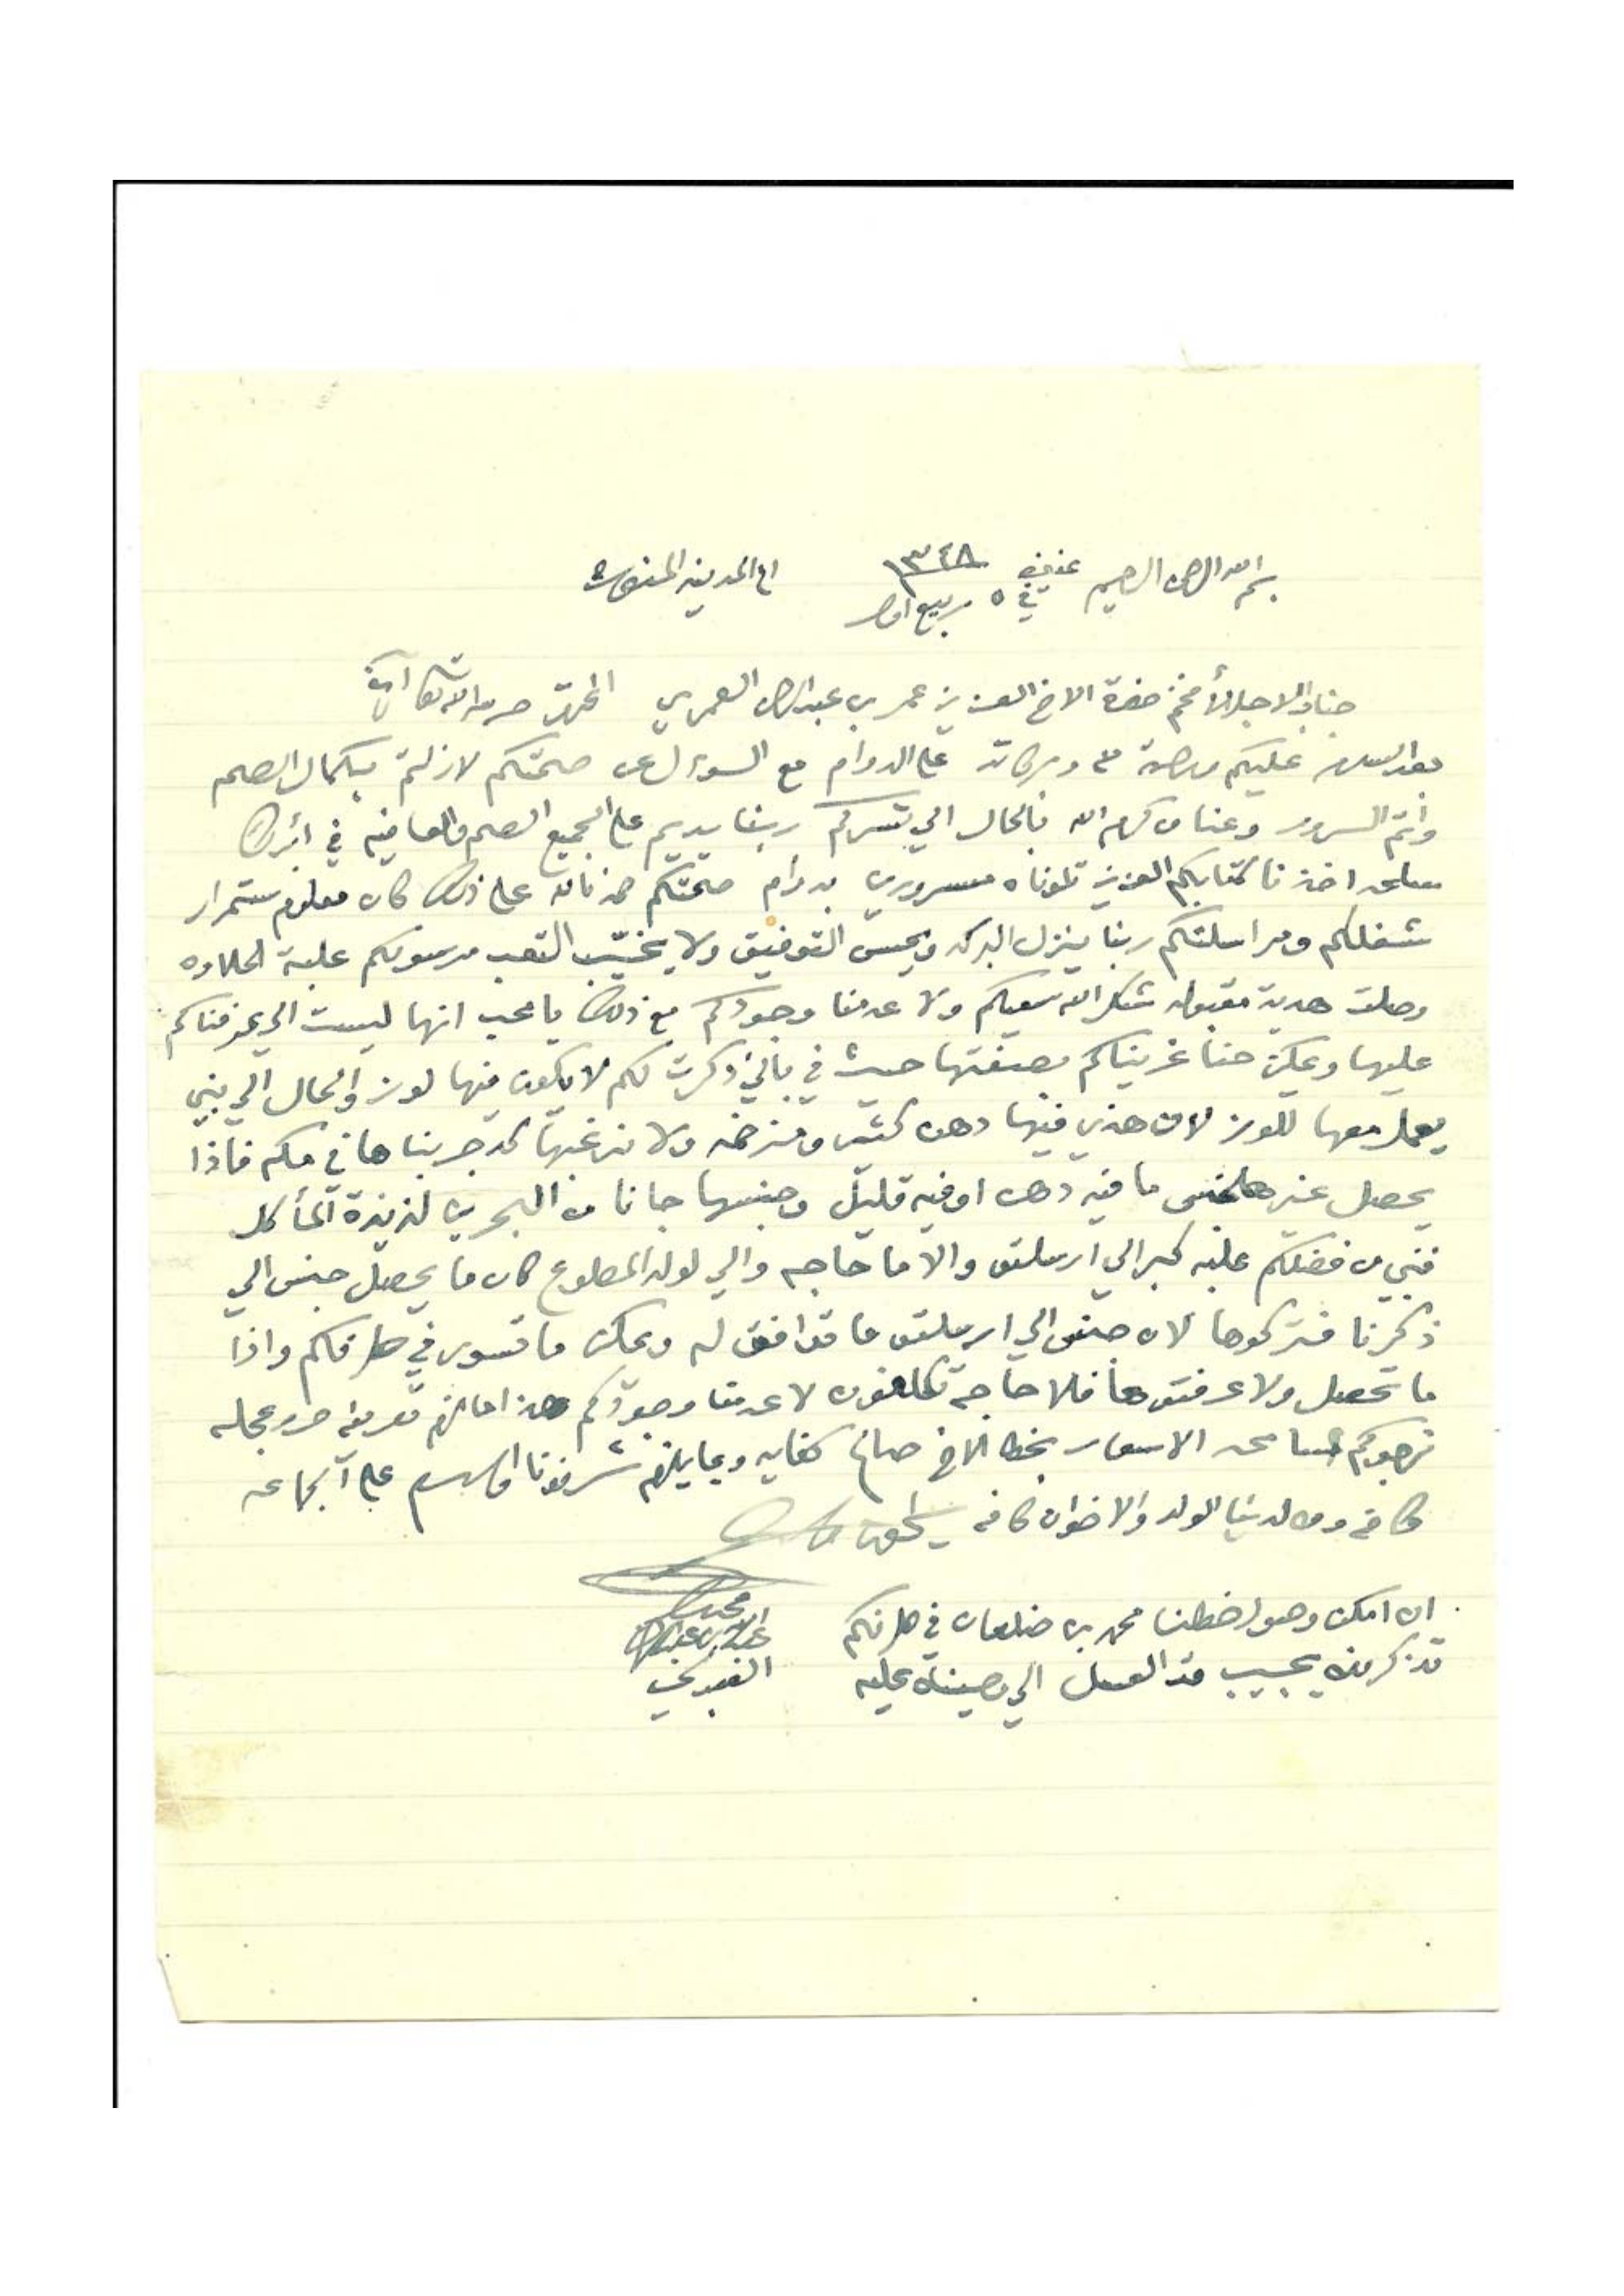 بسم الله الرحمن الرحيم عنيزة ١٣٤٨ الى المدينه المنوره
في ٥ ربيع اول
جناب الاجل الأفخم حضرة الاخ العزيز عمر بن عبدالرحمن العمري المحترم حرسه الله تعالى آمين
بعد السلام عليكم ورحمة الله وبركاته على الدوام مع السوءال عن صحتكم لازلتم بكمال الصحه
واتم السرور وعنا من كرم الله بالحال الي تسركم ربنا يديم على الجميع الصحه والعافيه في
اخذنا كتابكم العزيز تلوناه مسرورين بدوام صحتكم حمدنا الله على ذلك كان معلوم ستمرار
شغلكم ومراسلتكم ربنا ينزل البركه ويحسن التوفيق ولا يخيّب التعب مرسولكم علبة الحلاوه
وصلت هدية مقبوله شكر الله سعيكم ولا عدمنا وجودكم مع ذلك يا محب انها ليست الي عرفناكم
عليها ويمكن حنا غريناكم بصفتها حيث في بالي ذكرت لكم لا يكون فيها لوز والحال الي نبي
يعمل معها اللوز لان هذي فيها دهن كثير ومزخمه ولا نرغبها قد جربناها في مكه فاذا
يحصل غير هالجنس ما فيه دهن او فيه قليل وجنسها جانا من البحرين لذيذة المأكل
فنبي من فضلكم علبه كبر الي ارسلتو والا ما حاجه والي لولد المطوع كان ما يحصل جنس الي
ذكرنا فتركوها لان جنس الي ارسلتو ما توافق له ويمكن ما تسوى في طرفكم واذا
ما تحصل ولا عرفتوها فلا حاجة تكلفون لا عدمنا وجودكم هذا ما لزم تعريفه حرر عجله
نرجوكم السامحه الاسعار بخط الاخ صالح كفايه وبما يلزم شرفونا والسلام على الجماعه
كافه ومن لدينا الولد والاخوان كافه
محبكم
ان امكن وصول خطنا محمد بن ضلعان في طرفكم
عبدالله بن عبدالرحمن
تذكرونه يجيب قد العسل الي وصيناه عليه